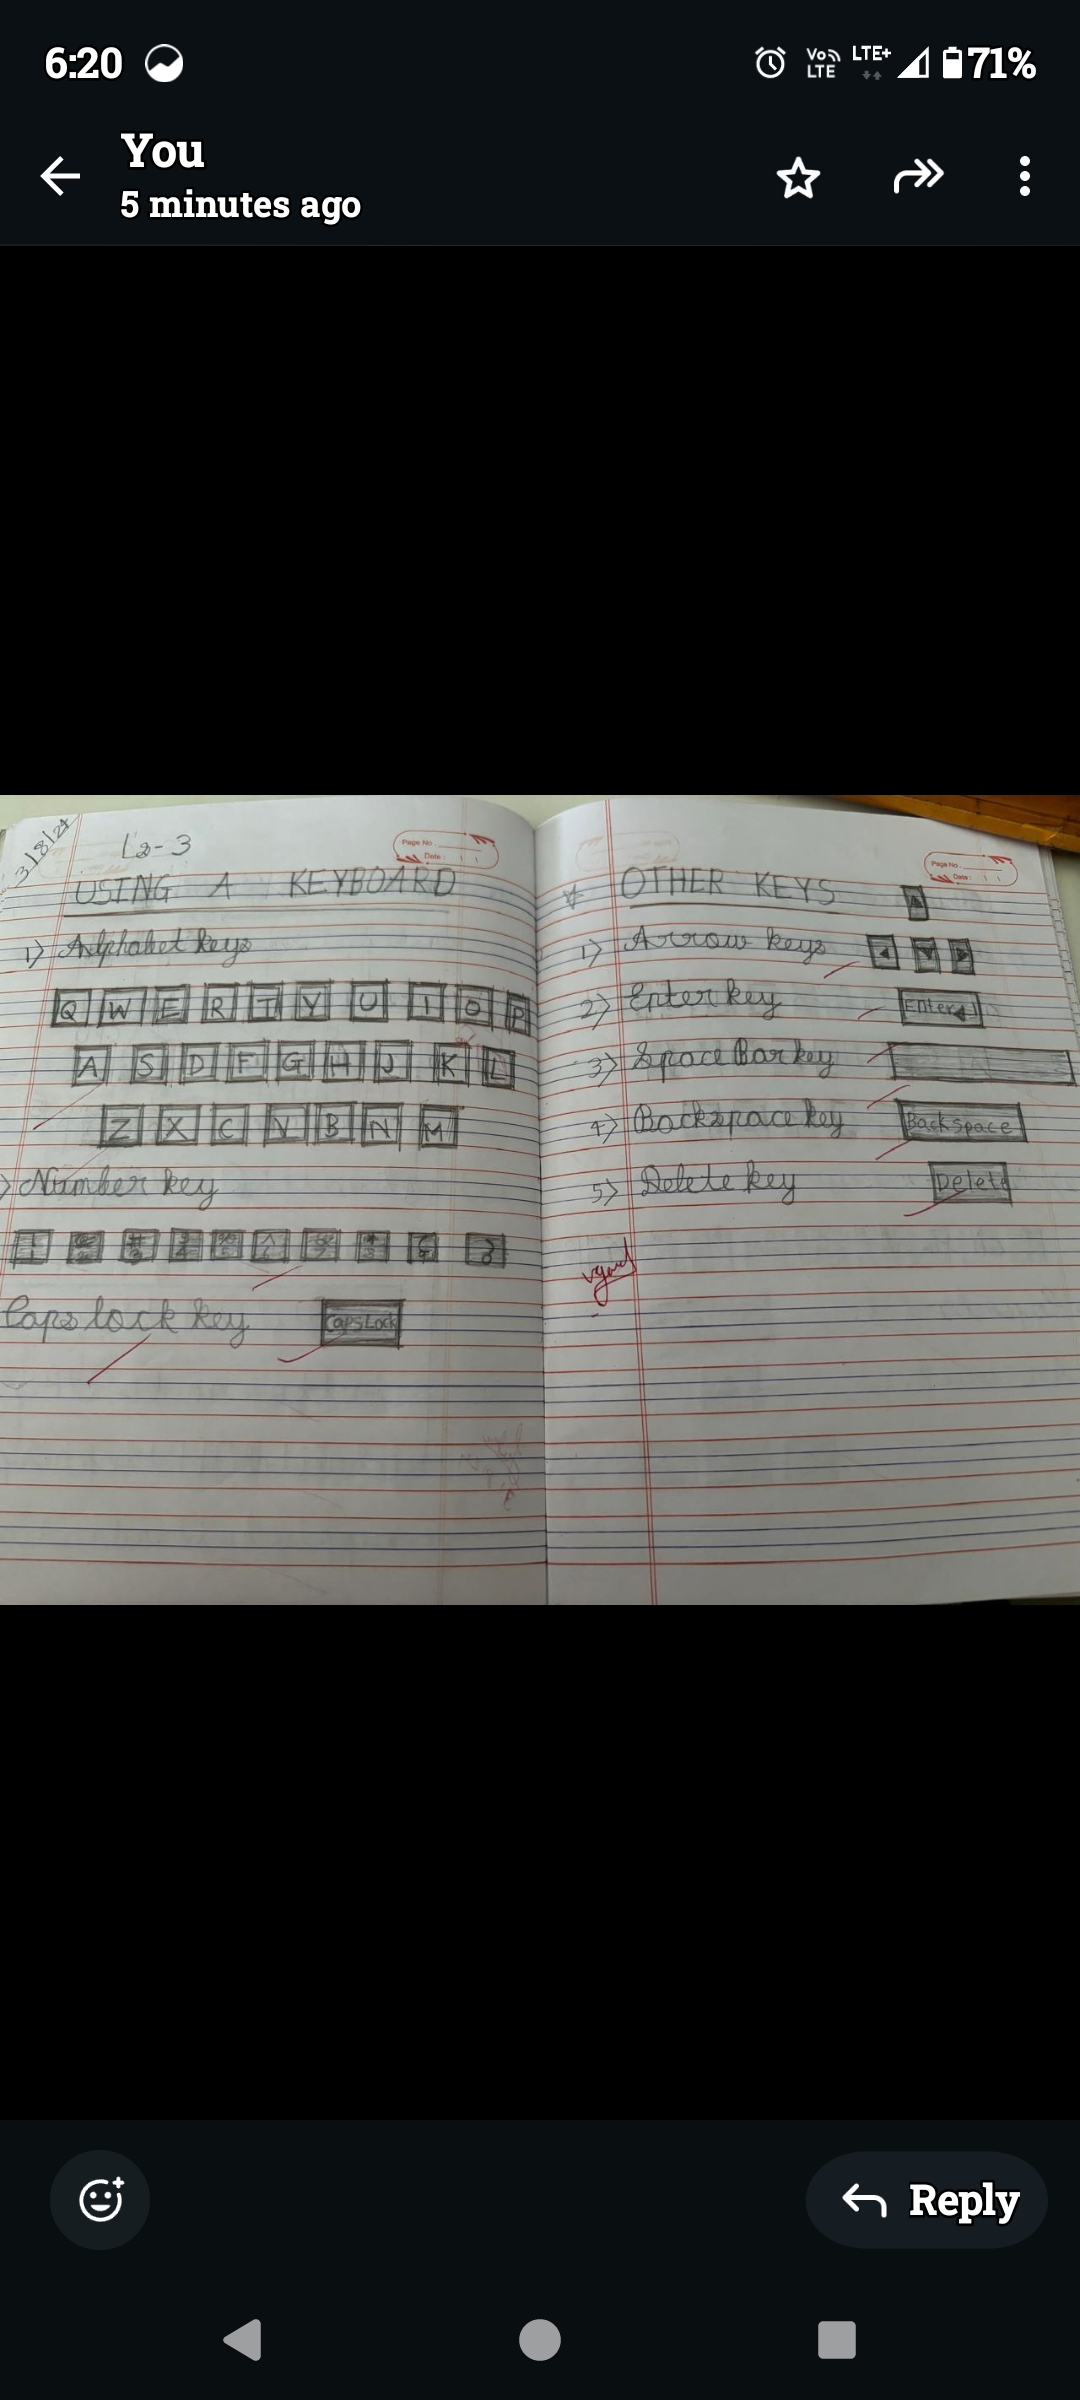 6:20
Vo LTE LTE+ 71%
You
5 minutes ago
3/8/24
L2-3
Page No.
Date:
USING A KEYBOARD
1) Alphabet keys
Q W E R T Y U I O P
A S D F G H J K L
Z X C V B N M
Number key
Caps lock key CapsLock
Page No.
Date:
OTHER KEYS
1) Arrow keys
2) Enter key Enter
3) Space Bar key
4) Backspace key Backspace
5) Delete key Delete
vgood
Reply